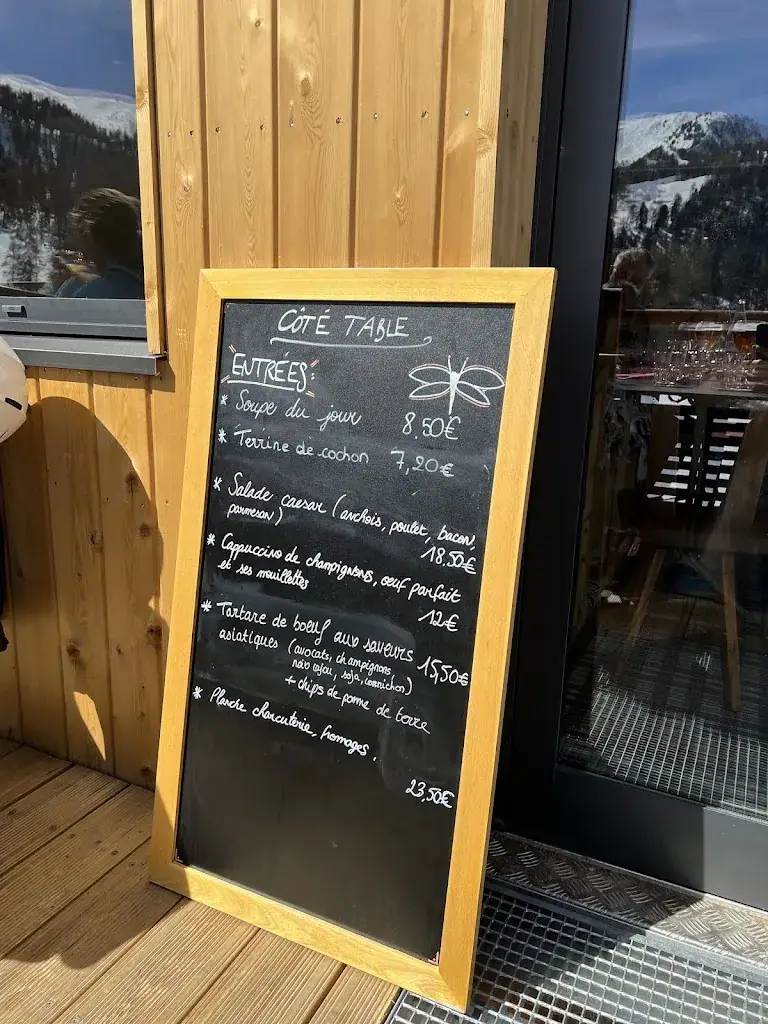 CÔTÉ TABLE
ENTRÉES:
* Soupe du jour 8,50€
* Terrine de cochon 7,20€
* Salade caesar (anchois, poulet, bacon,
parmesan) 18.50€
* Cappuccino de champignons, œuf parfait
et ses mouillettes 12€
* Tartare de bœuf aux saveurs
asiatiques (avocats, champignons 15,50€
noix cajou, soja, cornichon)
+ chips de pomme de terre
* Planche charcuterie, fromages.
23,50€